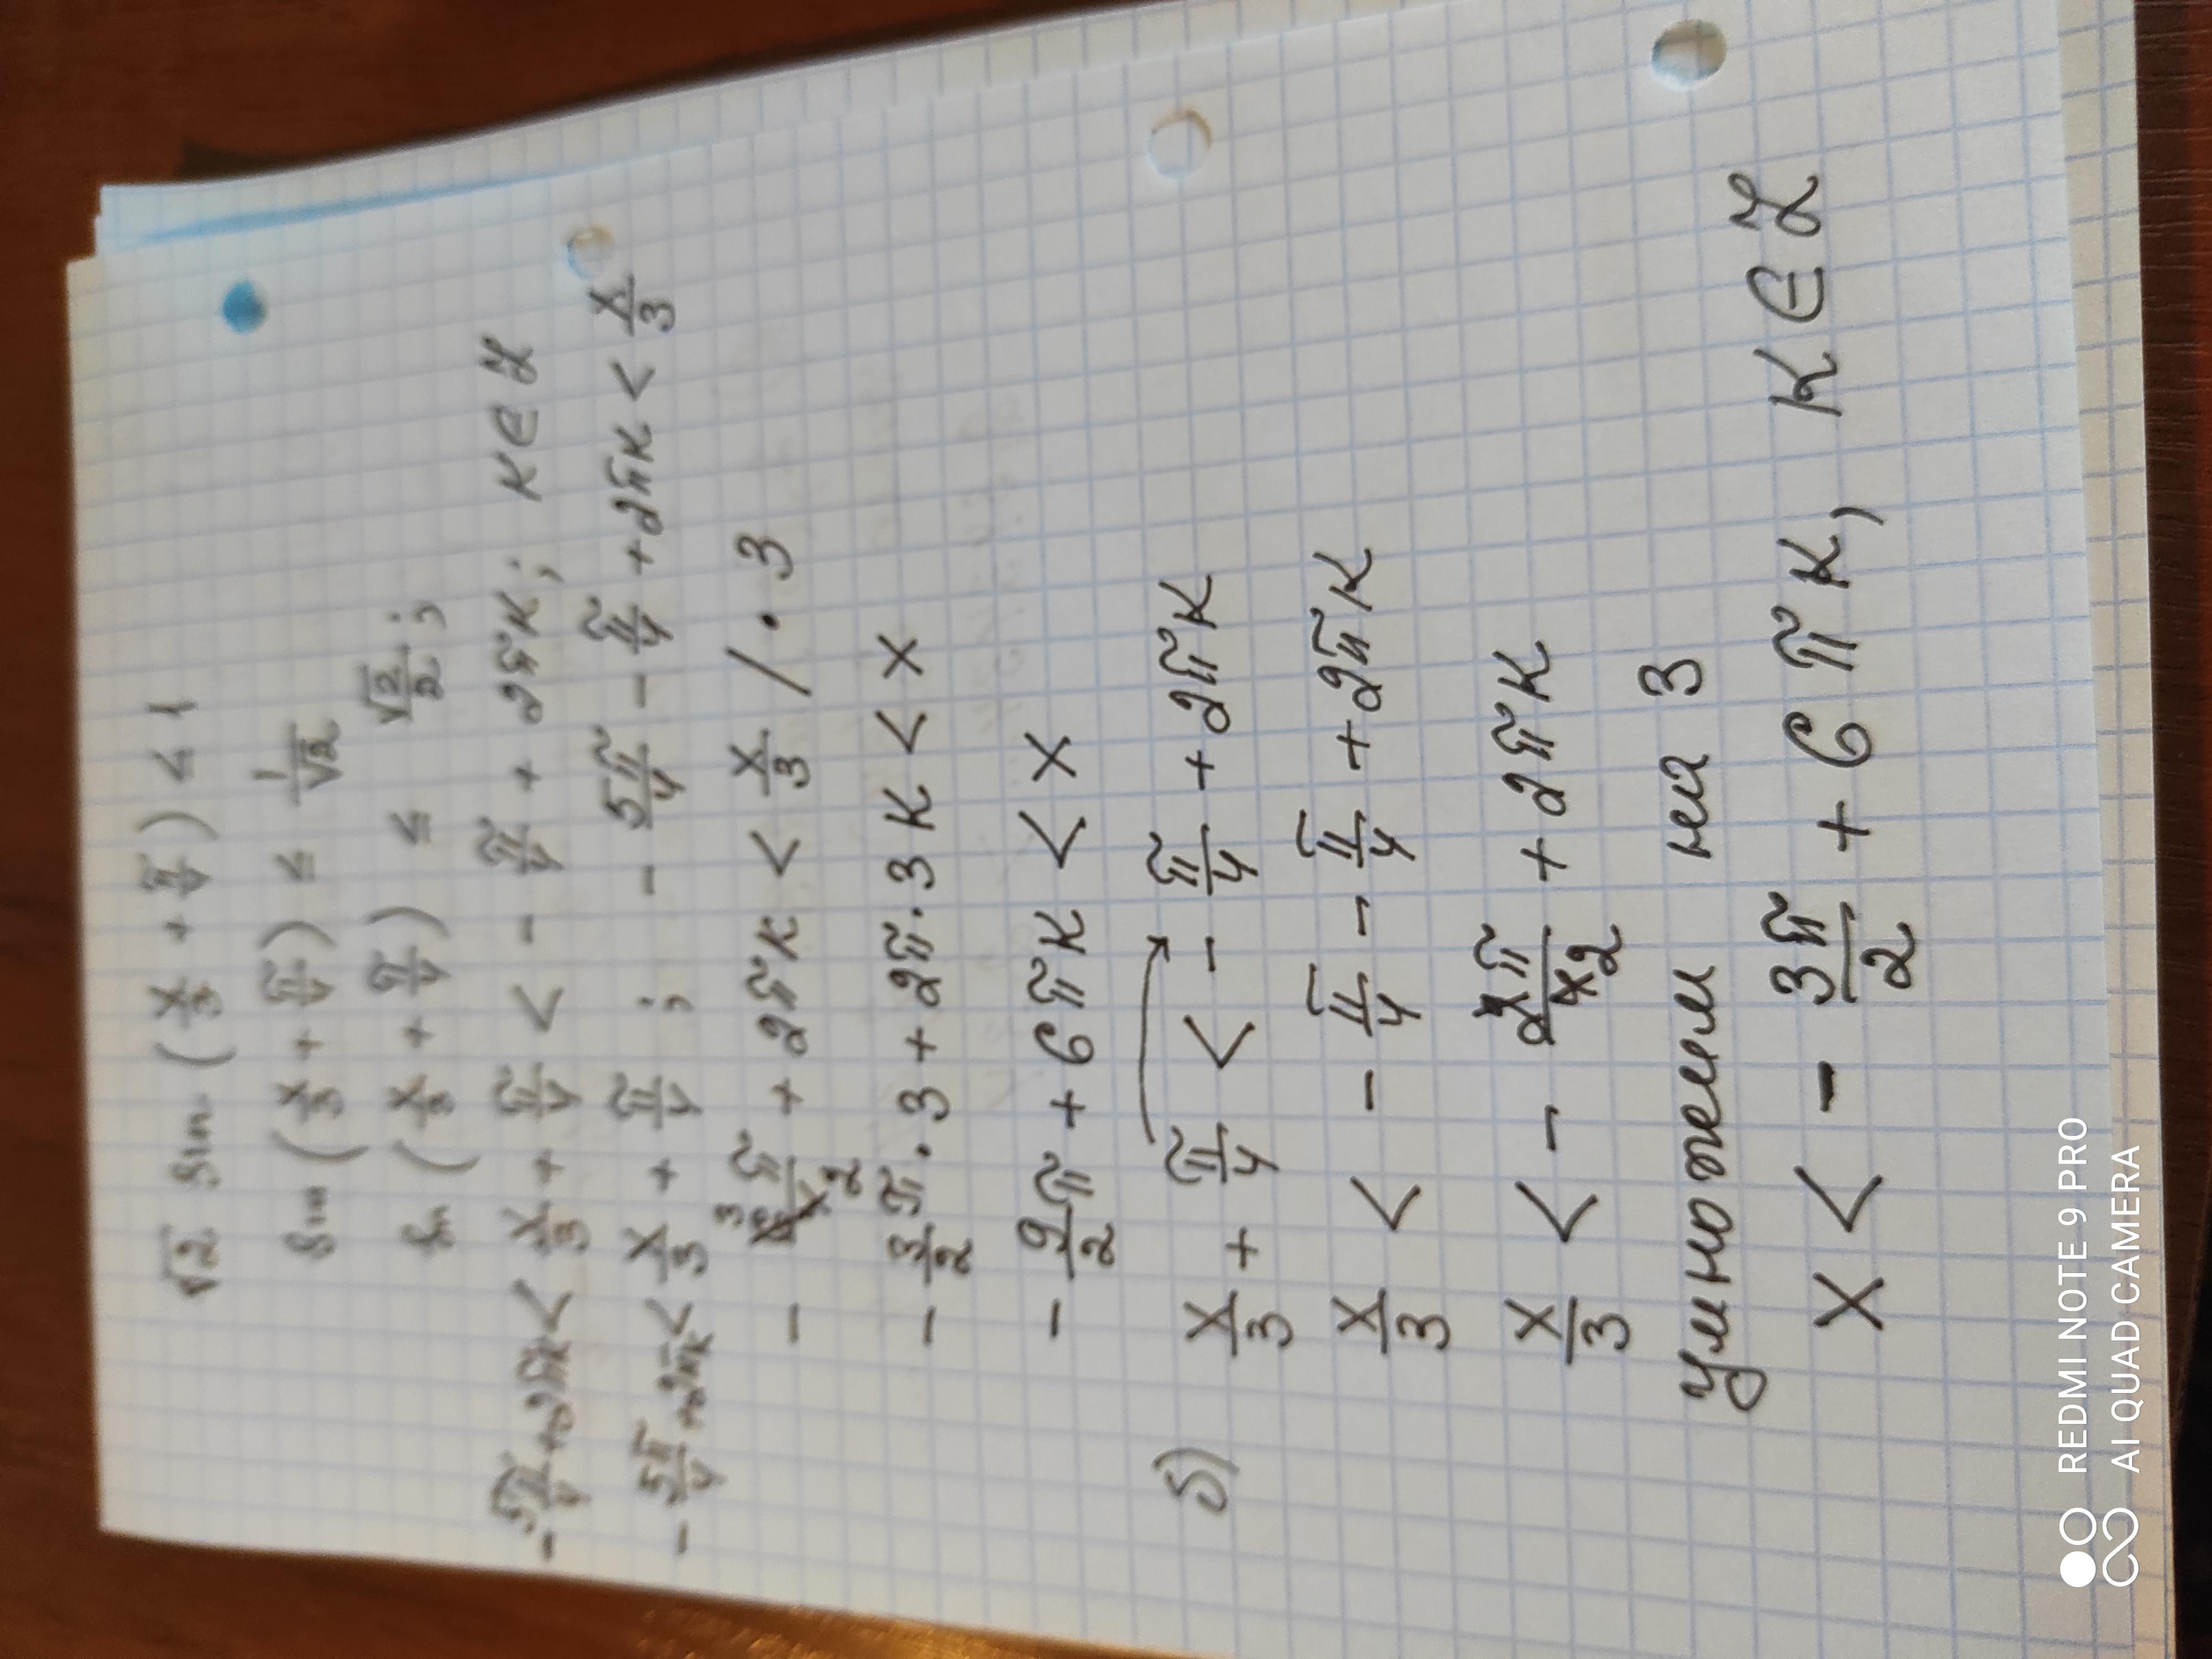 √2 sin (x/3 + π/4) ≤ 1
sin (x/3 + π/4) ≤ 1/√2
sin (x/3 + π/4) ≤ √2/2 ;
- 5π/4 + 2πк < x/3 + π/4 < - π/4 + 2πк ; к ∈ Z
- 5π/4 + 2πк < x/3 + π/4 ; - 5π/4 - π/4 + 2πк < x/3
- 3π/2 + 2πк < x/3 / · 3
- 3/2 π · 3 + 2π · 3к < x
- 9/2 π + 6πк < x
б) x/3 + π/4 < - π/4 + 2πк
x/3 < - π/4 - π/4 + 2πк
x/3 < - π/2 + 2πк
умножаем на 3
x < - 3π/2 + 6πк, к ∈ Z
REDMI NOTE 9 PRO
AI QUAD CAMERA